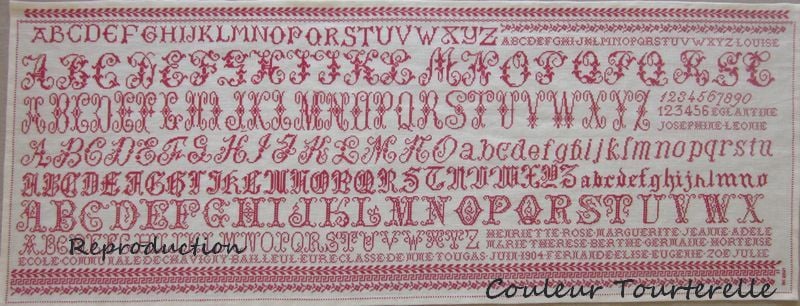 ABCDEFGHIJKLMNOPQRSTUVWXYZ ABCDEFGHIJKLMNOPQRSTUVWXYZ LOUISE
ABCDEFGHIJKLMNOPQRST
ABCDEFGHIJKLMNOPQRSTUVWXYZ 1234567890
123456 EGLANTINE
JOSEPHINE·LEONIE
ABCDEFGHIJKLMNO abcdefghijklmnopqrstu
ABCDEFGHIJKLMNOPQRSTUVWXYZ abcdefghijklmno
ABCDEFGHIJKLMNOPQRSTUVWX
ABCDEFGHIJKLMNOPQRSTUVWXYZ HENRIETTE·ROSE·MARGUERITE·JEANNE·ADELE
MARIE THERESE·BERTHE·GERMAINE·HORTENSE
ECOLE·COMMUNALE·DE·CHAVIGNY·BAILLEUL·EURE·CLASSE·DE·MME TOUGAS·JUIN·1904·FERNANDE·ELISE·EUGENIE·ZOE·JULIE
Reproduction
Couleur Tourterelle